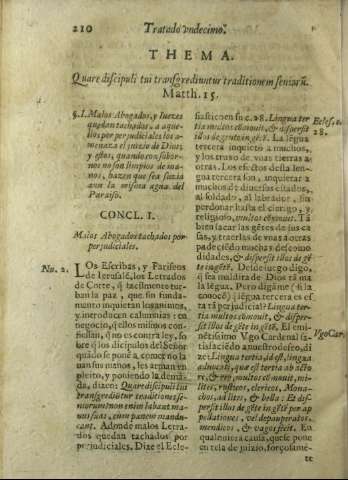 210 Tratado vndecimo.
THEMA.
Quare discipuli tui transgrediuntur traditionem seniorũ.
Matth. 15.
§. I. Malos Abogados, y Iuezes
quedan tachados, a aque-
llos por perjudiciales los a-
menaza el juizio de Dios,
y estos, quando con sobor-
nos no son limpios de ma-
nos, hazen que sea suzia
aun la misma agua del
Paraiso.
CONCL. I.
Malos Abogados tachados por
perjudiciales.
Nu. 2.
LOs Escribas, y Fariseos
de Ierusalẽ, los Letrados
de Corte, q̃ facilmente tur-
ban la paz, que sin funda-
mento inquietan los animos,
y introducen calumnias: en
negocio, q̃ ellos mismos con-
fiessan, q̃ no es contra ley, so-
bre q̃ los dicipulos del Señor
quãdo se ponẽ a comer no la
uan sus manos, les arman en
pleito, y poniendo la deman
da, dizen: Quare discipuli tui
transgrediũtur traditionẽ se-
niorum? non enim labant ma-
nus suas, cùm panem mandu-
cant. Adonde malos Letra-
dos quedan tachados por
perjudiciales. Dize el Ecle-
siastico en su c. 28. Lingua ter
tia multos cõmouit, & dispersit
illos de gente in gẽtẽ. La lẽgua
tercera inquietò a muchos,
y los truxo de vnas tierras a
otras. Los efectos desta len-
gua tercera son, inquietar a
muchos de diuersos estados,
al soldado, al labrador, sin
perdonar hasta el clerigo, y
religioso, multos cõmouit. Tã
bien sacar las gẽtes de sus ca
sas, y traerlas de vnas a otras
padeciẽdo muchas descomo
didades, & dispersit illos de gẽ
te in gẽtẽ. Desde luego digo,
q̃ sea maldita de Dios tã ma
la lẽgua. Pero digãme (si la
conocẽ) q̃ lẽgua tercera es es
ta tã perjudicial? Lingua ter-
tia multos cõmouit, & disper-
sit illos de gẽte in gẽtẽ. El emi
nẽtissimo Vgo Cardenal sa-
tisfaciẽdo a nuestro deseo, di
ze: Lingua tertia, id est, lingua
aduocati, quæ est tertia ab acto
re, & reo, multos cõmouit, mi-
lites, rusticos, clericos, Mona-
chos, ad lites, & bella: Et dis-
persit illos de gẽte in gẽtẽ per ap
pellationes, vel depauperatos,
mendicos, & vagos fecit. En
qualquiera causa, que se pone
en tela de juizio, forçosame-
Ecles. c.
28.
Vgo Car.
te